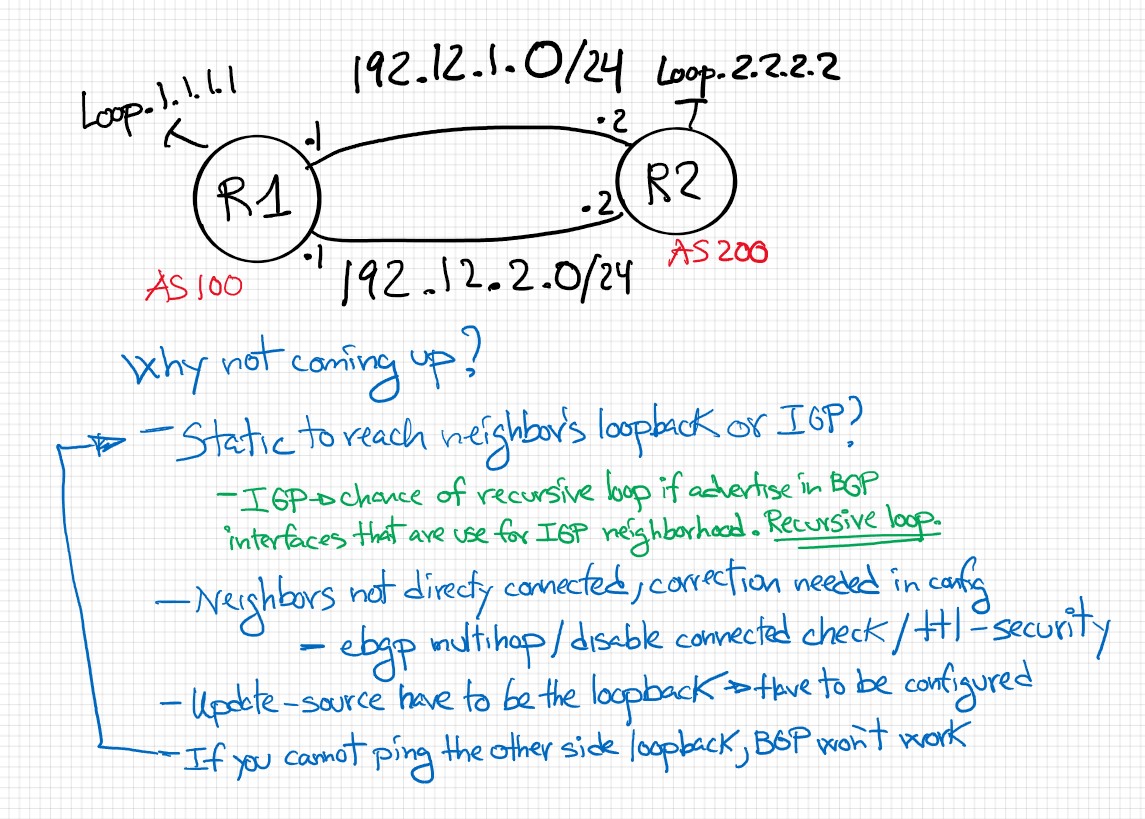 192.12.1.0/24
Loop.2.2.2.2
Loop.1.1.1.1
.1
.2
R1
R2
.2
.1
AS 200
AS 100
192.12.2.0/24
Why not coming up?
- Static to reach neighbor's loopback or IGP?
- IGP → chance of recursive loop if advertise in BGP
interfaces that are use for IGP neighborhood. Recursive loop.
- Neighbors not directy connected, correction needed in config
- ebgp multihop/disable connected check/ttl-security
- Update-source have to be the loopback → Have to be configured
- If you cannot ping the other side loopback, BGP won't work